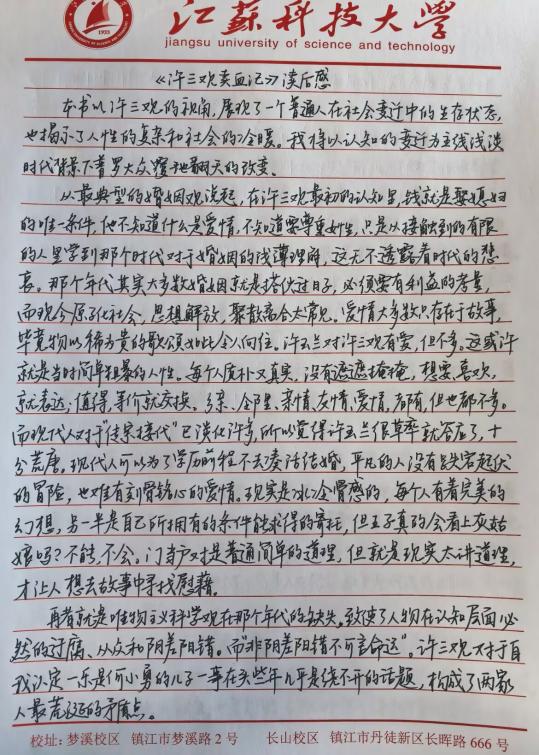 江蘇科技大學
jiangsu university of science and technology
1933
《许三观卖血记》读后感
本书以许三观的视角,展现了一个普通人在社会变迁中的生存状态,
也揭示了人性的复杂和社会的冷暖。我将以认知的变迁为主线浅谈
时代背景下普罗大众覆地翻天的改变。
从最典型的婚姻观说起,在许三观最初的认知里,钱就是娶媳妇
的唯一条件,他不知道什么是爱情,不知道要尊重女性,只是从接触到的有限
的人里学到那个时代对于婚姻的浅薄理解,这无不透露着时代的悲
哀。那个年代其实大多数婚姻就是搭伙过日子,必须要有利益的考量,
而现今原子化社会,思想解放,聚散离合太常见。爱情大多数只存在于故事,
毕竟物以稀为贵的歌颂如此令人向往。许玉兰对许三观有爱,但不多,这或许
就是当时简单粗暴的人性。每个人质朴又真实,没有遮遮掩掩,想要、喜欢,
就表达;值得,等价就交换。乡亲、邻里、亲情、友情、爱情,都有,但也都不多。
而现代人对于“传宗接代”已淡化许多,所以觉得许玉兰很草率就答应了,十
分荒唐。现代人可以为了学历前程不去凑活结婚,平凡的人没有跌宕起伏
的冒险,也难有刻骨铭心的爱情。现实是冰冷骨感的,每个人有着完美的
幻想,另一半是自己所拥有的条件能求得的寄托,但王子真的会看上灰姑
娘吗?不能,不会。门当户对才是普通简单的道理,但就是现实太讲道理,
才让人想去故事中寻找慰藉。
再者就是唯物主义科学观在那个年代的缺失,致使了人物在认知层面必
然的迂腐、从众和阴差阳错。而“非阴差阳错不可言命运”。许三观对于自
我认定一乐是何小勇的儿子一事在头些年几乎是绕不开的话题,构成了两家
人最荒诞的矛盾点。
校址:梦溪校区 镇江市梦溪路2号 长山校区 镇江市丹徒新区长晖路666号